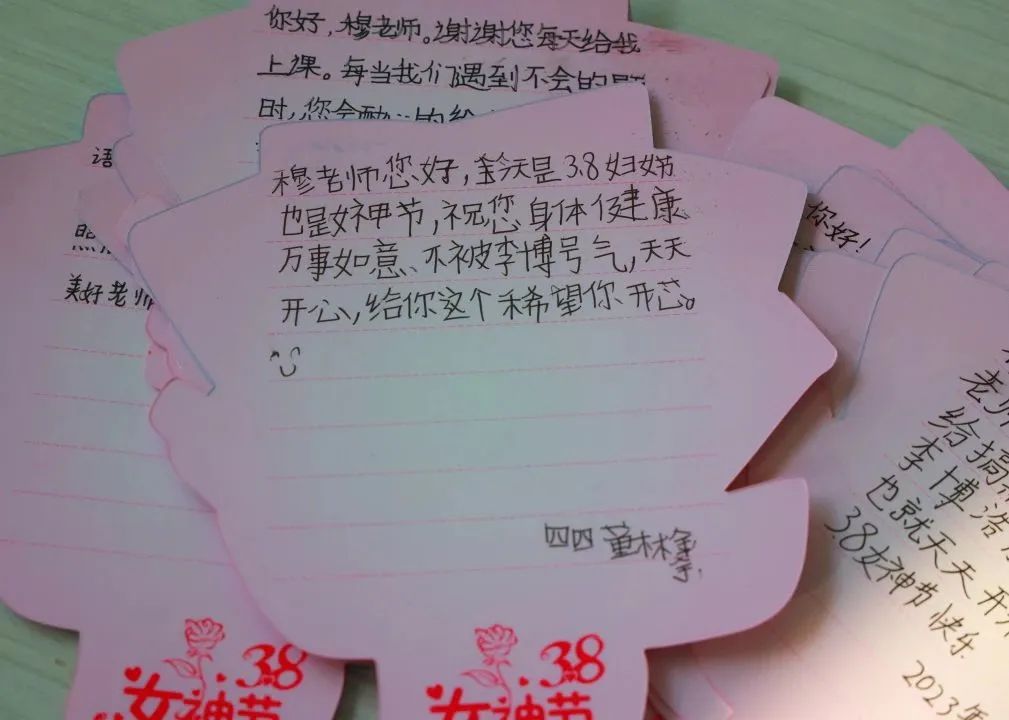 你好，穆老师。谢谢您每天给我
上课。每当我们遇到不会的题
时，您会耐心的给
语
美好老师
穆老师您好，今天是3.8妇女节
也是女神节，祝您身体健康
万事如意、不被李博号气，天天
开心，给你这个希望你开芯。
四四 董林
你好！
老师
给搞
李博浩
也就天天开
3.8女神节快乐
2023年
3.8
女神节
3.8
女神节